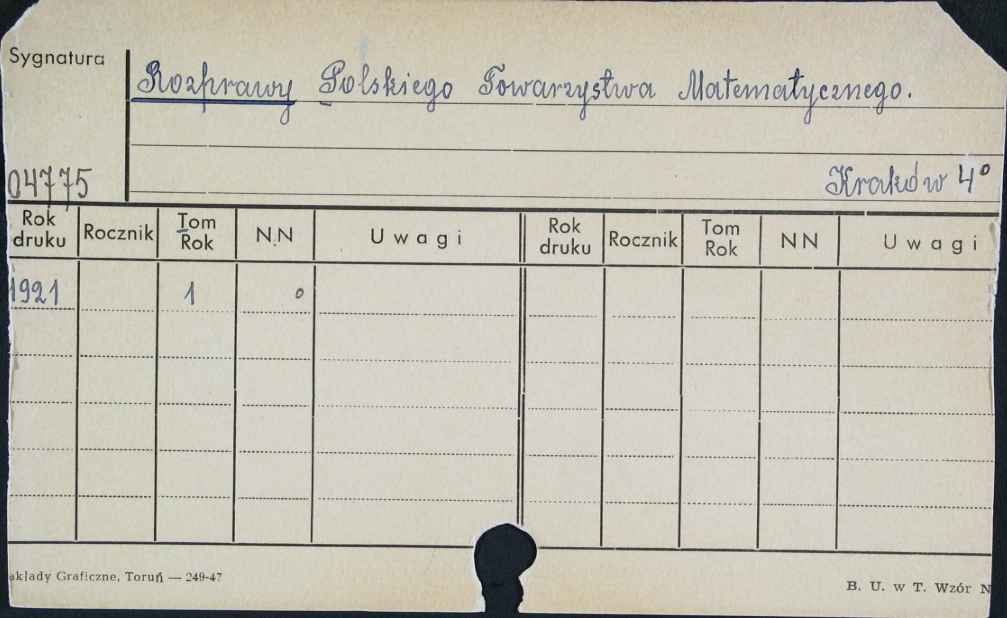 Sygnatura
Rozprawy Polskiego Towarzystwa Matematycznego.
04775
Kraków 4°
Rok druku Rocznik Tom Rok N.N Uwagi Rok druku Rocznik Tom Rok NN Uwagi
1921 1 o
akłady Graficzne, Toruń — 249-47
B. U. w T. Wzór N